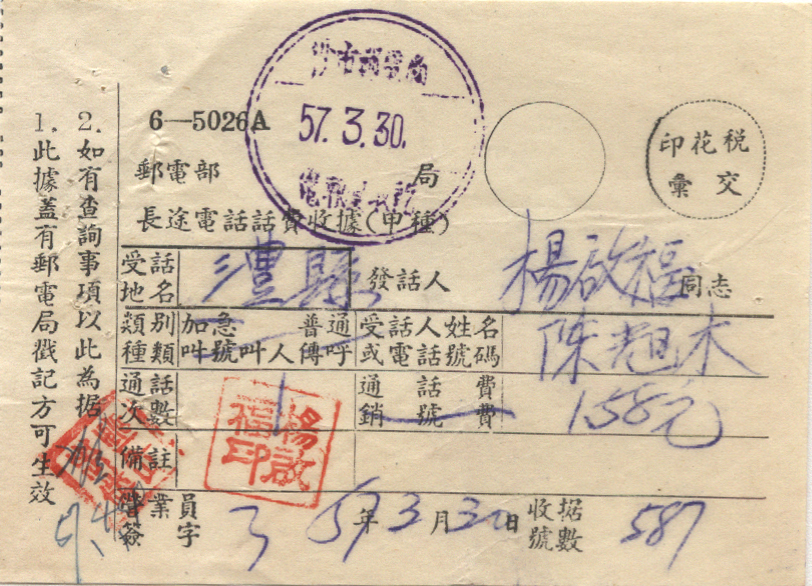 6—5026A
沙市郵電局
57.3.30.
郵電部 局
印花税
彙交
長途電話話費收據(甲種)
受話地名 澧縣 發話人 楊啟福 同志
類別種類 加急 普通 叫號 叫人 傳呼 受話人姓名或電話號碼 陳旭木
通話次數 1 通話費 銷號費 1.58元
備註
營業員簽字 57年3月30日 收据號數 587
楊啟福印
1.此據蓋有郵電局戳記方可生效
2.如有查詢事項以此為据